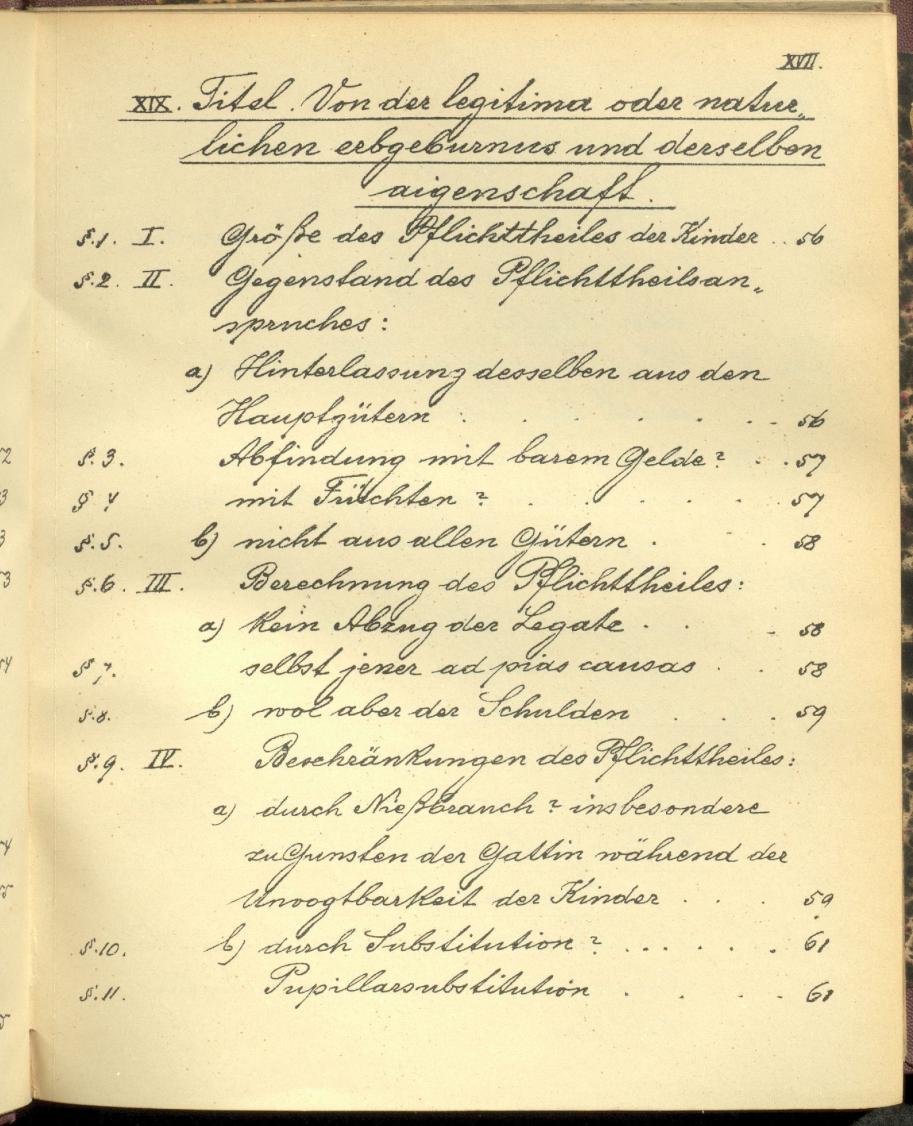 XVII.
XIX. Titel. Von der legitima oder natur„
lichen erbgeburnus und derselben
aigenschaft.
§.1. I. Größe des Pflichttheiles der Kinder .. 56
§.2 II. Gegenstand des Pflichttheilsan„
spruches:
a) Hinterlassung desselben aus den
Hauptgütern . . . . . . 56
§.3. Abfindung mit barem Gelde? . . 57
§ 4 mit Früchten? . . . . . 57
§.5. b) nicht aus allen Gütern . . . 58
§.6. III. Berechnung des Pflichttheiles:
a) kein Abzug der Legate . . . 58
§ 7. selbst jener ad pias causas . . 58
§.8. b) wol aber der Schulden . . . 59
§.9. IV. Beschränkungen des Pflichttheiles:
a) durch Nießbrauch? insbesondere
zu Gunsten der Gattin während der
Unvogtbarkeit der Kinder . . . 59
§.10. b) durch Substitution? . . . . . . 61
§.11. Pupillarsubstitution . . . . 61